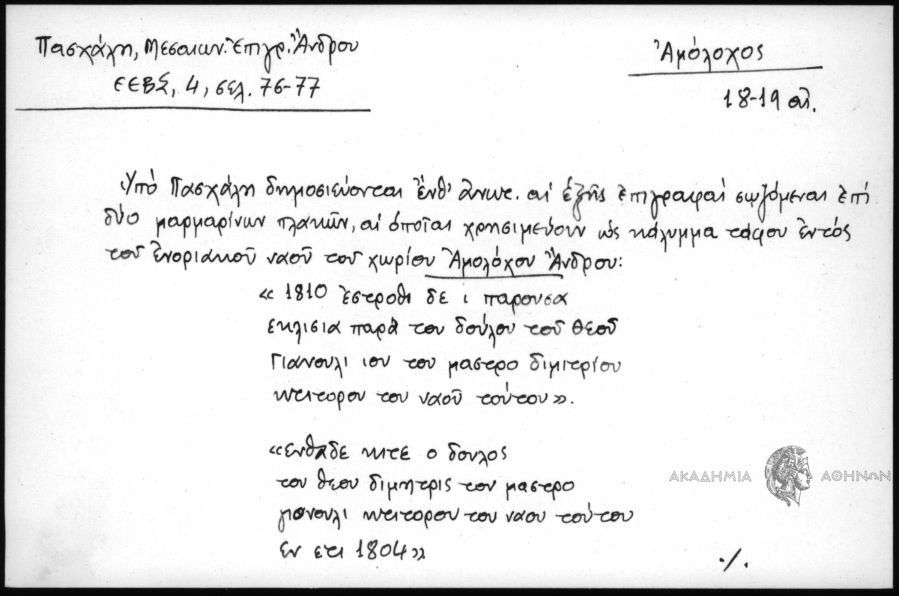 Πασχάλη, Μεσαιων. Ἐπιγρ. Ἄνδρου
ΕΕΒΣ, 4, σελ. 76-77
Ἀμόλοχος
18-19 αἰ.
Ὑπό Πασχάλη δημοσιεύονται ἔνθ' ἄνωτ. αἱ ἑξῆς ἐπιγραφαί σωζόμεναι ἐπί
δύο μαρμαρίνων πλακῶν, αἱ ὁποῖαι χρησιμεύουν ὡς κάλυμμα τάφου ἐντός
τοῦ ἐνοριακοῦ ναοῦ τοῦ χωρίου Ἀμολόχου Ἄνδρου:
« 1810 ἐστροθι δε ι παρουσα
εκλισια παρά του δούλου τοῦ θεοῦ
Γιανουλι ιου του μαστρο διμιτρίου
κτιτορου του ναοῦ τούτου».
«ενθαδε κιτε ο δουλος
του θεου διμητρις του μαστρο
γιανουλι κτιτορου του ναου τούτου
εν ετι 1804»
./.
ΑΚΑΔΗΜΙΑ ΑΘΗΝΩΝ